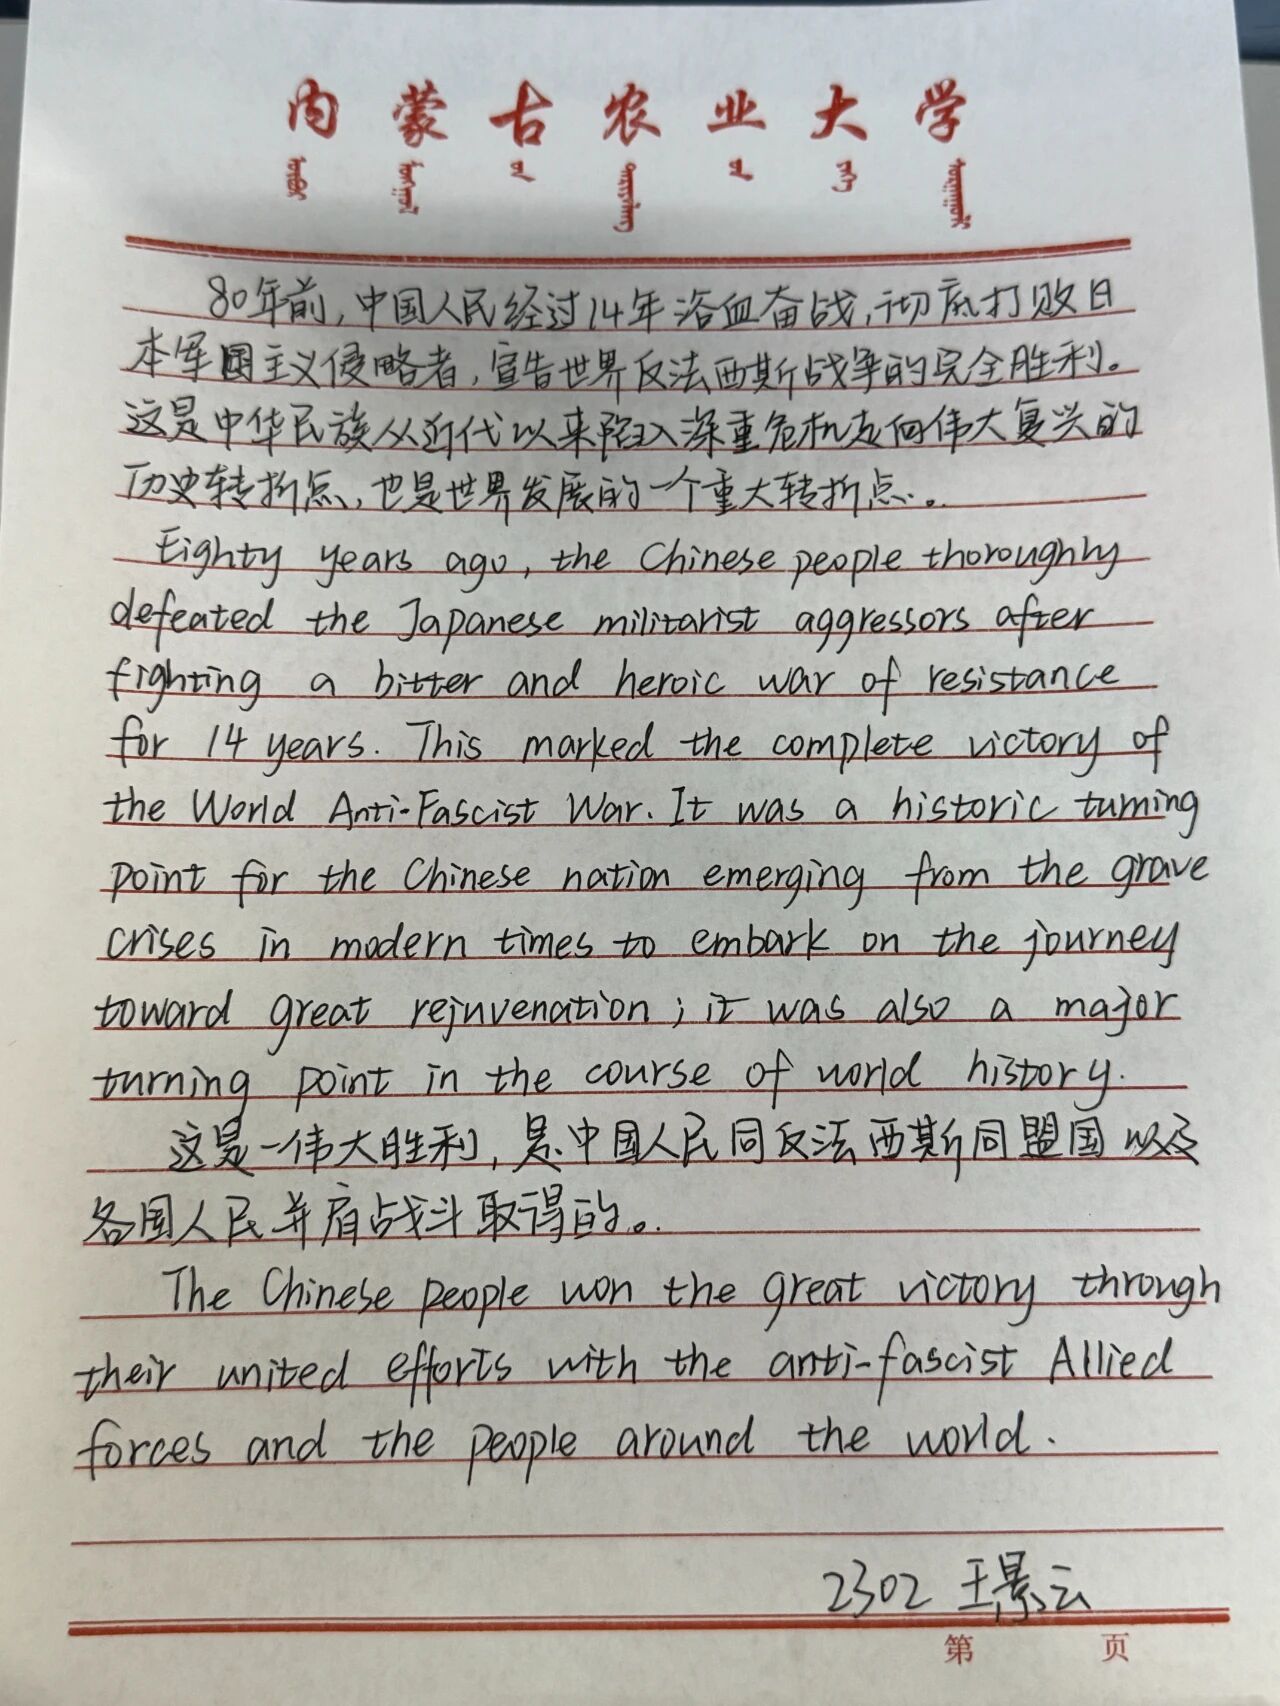 内蒙古农业大学
80年前，中国人民经过14年浴血奋战，彻底打败日
本军国主义侵略者，宣告世界反法西斯战争的完全胜利。
这是中华民族从近代以来陷入深重危机走向伟大复兴的
历史转折点，也是世界发展的一个重大转折点。
Eighty years ago, the Chinese people thoroughly
defeated the Japanese militarist aggressors after
fighting a bitter and heroic war of resistance
for 14 years. This marked the complete victory of
the World Anti-Fascist War. It was a historic turning
point for the Chinese nation emerging from the grave
crises in modern times to embark on the journey
toward great rejuvenation; it was also a major
turning point in the course of world history.
这是一伟大胜利，是中国人民同反法西斯同盟国以及
各国人民并肩战斗取得的。
The Chinese people won the great victory through
their united efforts with the anti-fascist Allied
forces and the people around the world.
2302 王景云
第 页